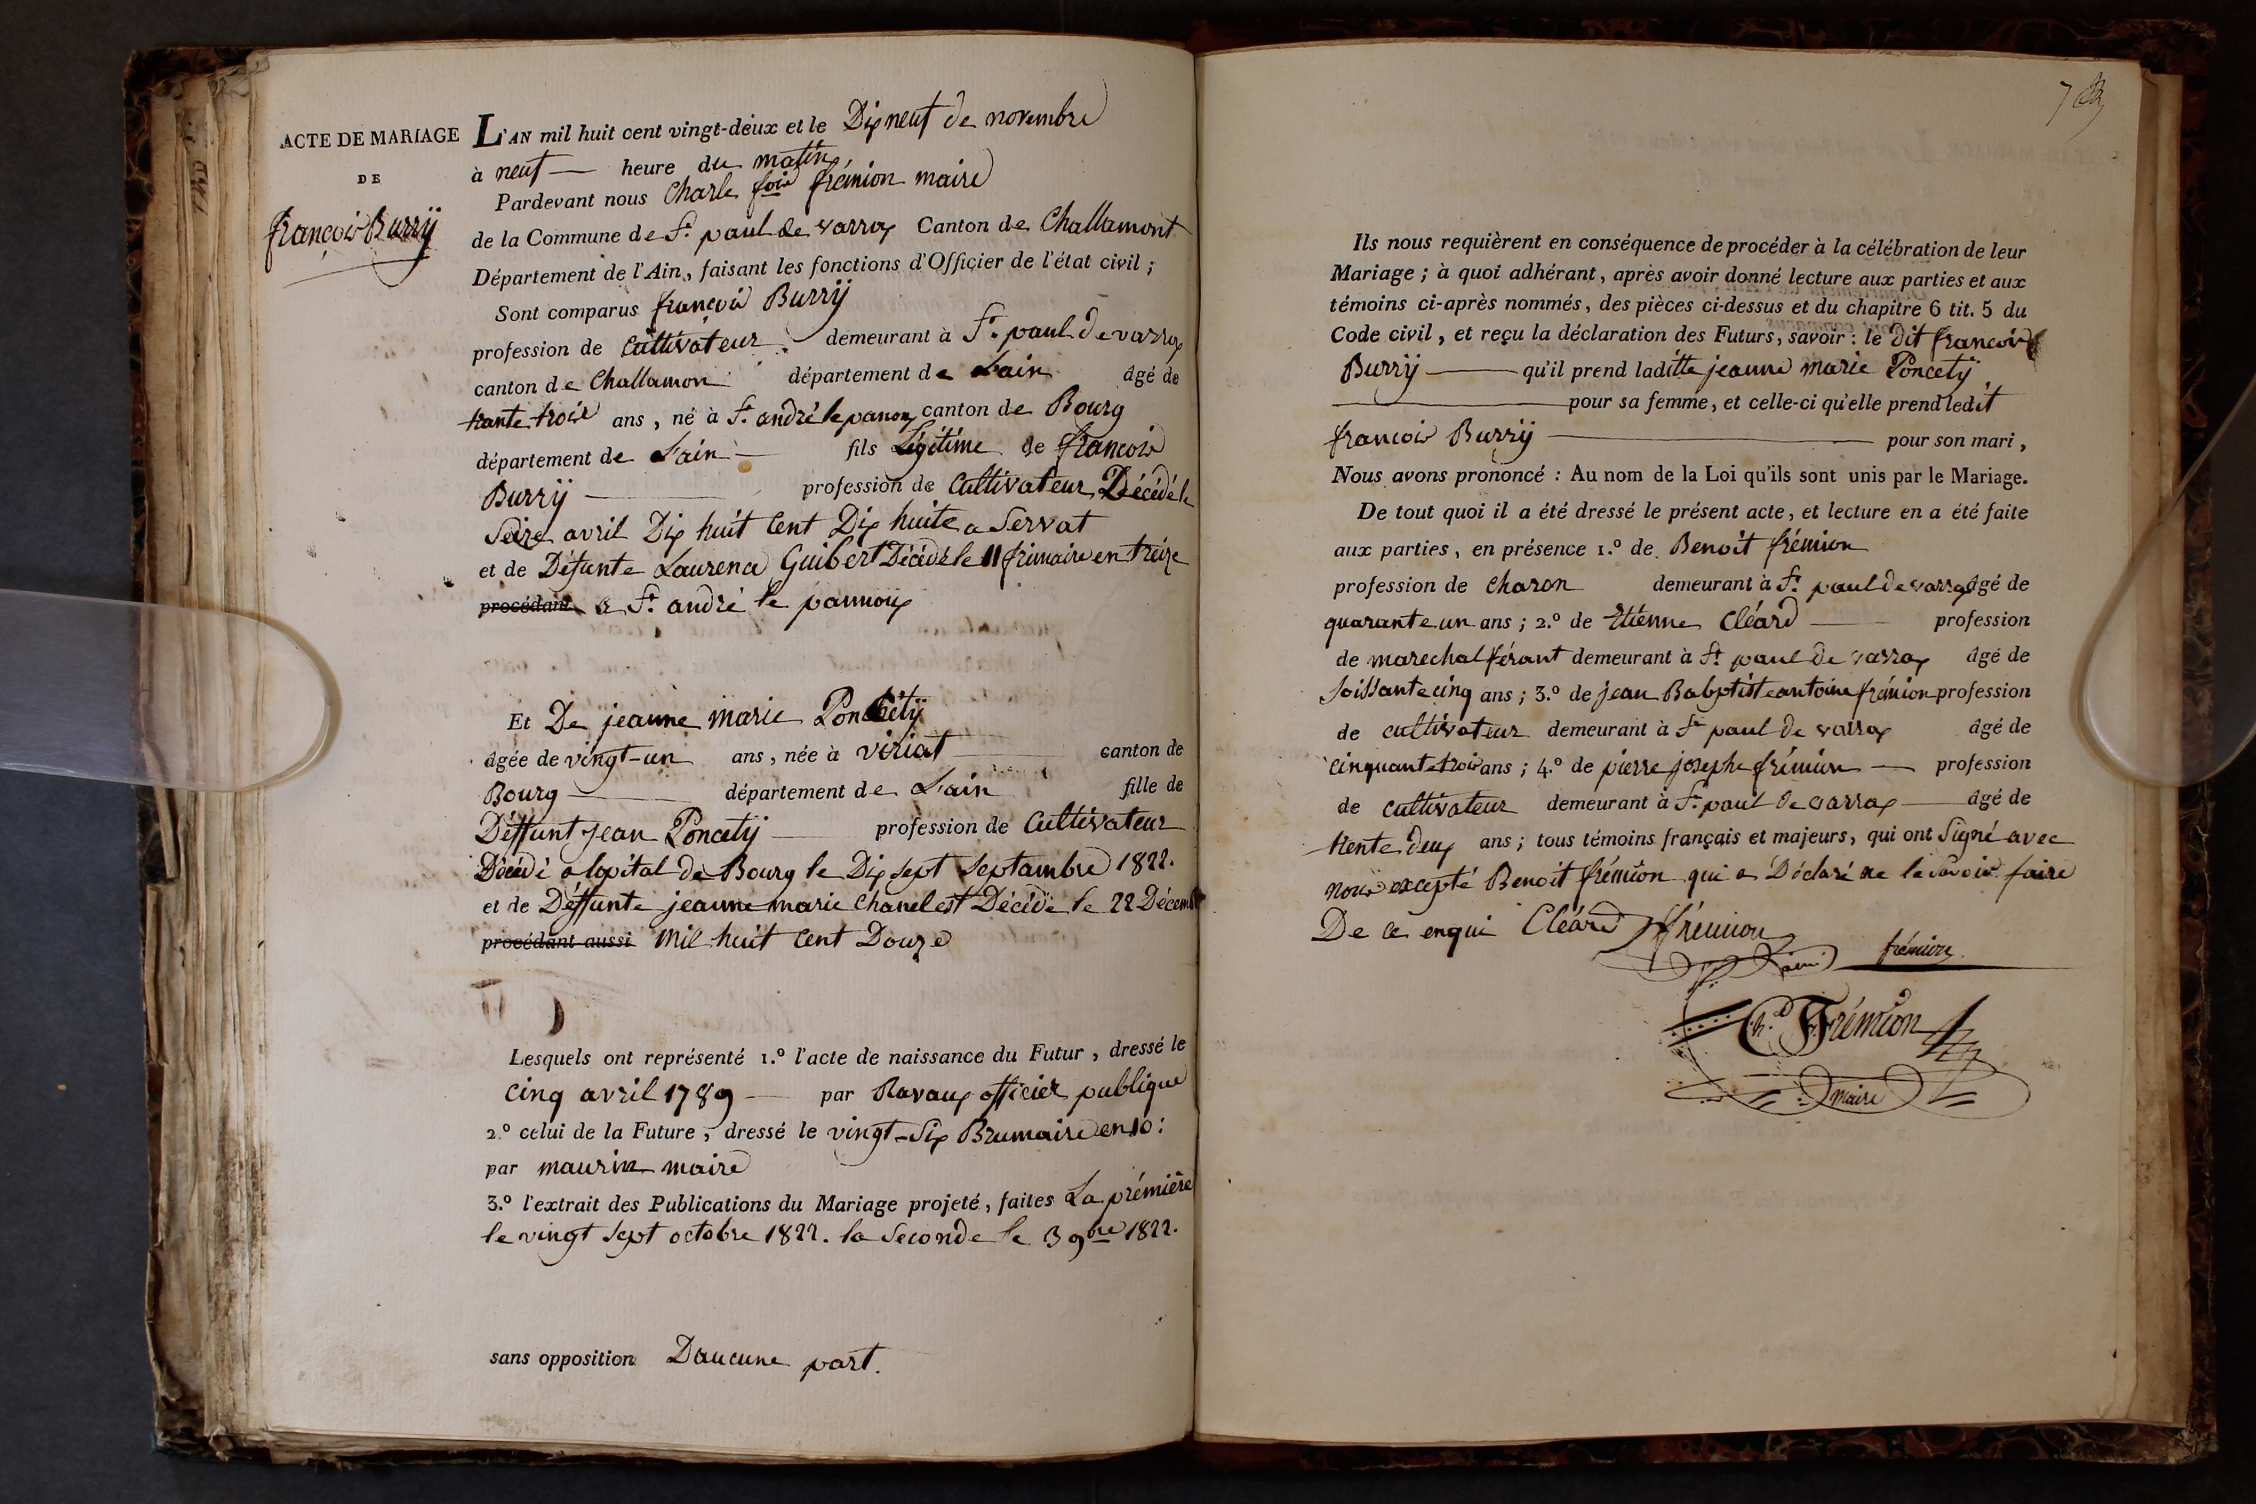 ACTE DE MARIAGE
DE
françois Burrÿ
L'AN mil huit cent vingt-deux et le Dix neuf de novembre
à neuf — heure du matin
Pardevant nous Charle fois frémion maire
de la Commune de St. paul de varrax Canton de Challamont
Département de l'Ain, faisant les fonctions d'Officier de l'état civil ;
Sont comparus françois Burrÿ
profession de Cultivateur demeurant à St. paul de varrax
canton de Challamon département de L'ain âgé de
trante trois ans, né à St. andré le panoux canton de Bourg
département de L'ain — fils Légitime de françois
Burrÿ — profession de Cultivateur, Décédé le
Seize avril Dix huit Cent Dix huite a Servat
et de Défunte Laurence Guibert Décédé le 11 frimaire en treize
procédant a St. andré le pannoux
Et De jeanne marie Poncetÿ
âgée de vingt-un ans, née à viriat — canton de
Bourg — département de L'ain fille de
Déffunt jean Poncetÿ — profession de Cultivateur
Décédé a lopital de Bourg le Dix sept septambre 1822.
et de Déffunte jeanne marie Chanel est Décédé le 22 Décemb
procédant aussi Mil huit Cent Douze
Lesquels ont représenté 1.º l'acte de naissance du Futur, dressé le
Cinq avril 1789 — par Ravaux officier publique
2.º celui de la Future, dressé le vingt-Six Brumaire en 10 :
par maurin maire
3.º l'extrait des Publications du Mariage projeté, faites La prémière
le vingt sept octobre 1822. la Seconde le 3 9bre 1822.
sans opposition Daucune part.
Ils nous requièrent en conséquence de procéder à la célébration de leur
Mariage ; à quoi adhérant, après avoir donné lecture aux parties et aux
témoins ci-après nommés, des pièces ci-dessus et du chapitre 6 tit. 5 du
Code civil, et reçu la déclaration des Futurs, savoir : le dit francois
Burrÿ — qu'il prend laditte jeanne marie Poncetÿ
— pour sa femme, et celle-ci qu'elle prend ledit
francois Burrÿ — pour son mari,
Nous avons prononcé : Au nom de la Loi qu'ils sont unis par le Mariage.
De tout quoi il a été dressé le présent acte, et lecture en a été faite
aux parties, en présence 1.º de Benoit frémion
profession de charon demeurant à St. paul de varrax âgé de
quarante un ans ; 2.º de Etienne Cléard — profession
de marechal férant demeurant à St. paul de varrax âgé de
soissante cinq ans ; 3.º de jean Babptiste antoine frémion profession
de cultivateur demeurant à St. paul de varrax âgé de
cinquante trois ans ; 4.º de pierre josephe frémion — profession
de cultivateur demeurant à St. paul de varrax — âgé de
trente deux ans ; tous témoins français et majeurs, qui ont Signé avec
nous excepté Benoit frémion qui a Déclaré ne le savoir faire
De ce enqui Cléard frémion
frémion
Ch. d Frémion
maire